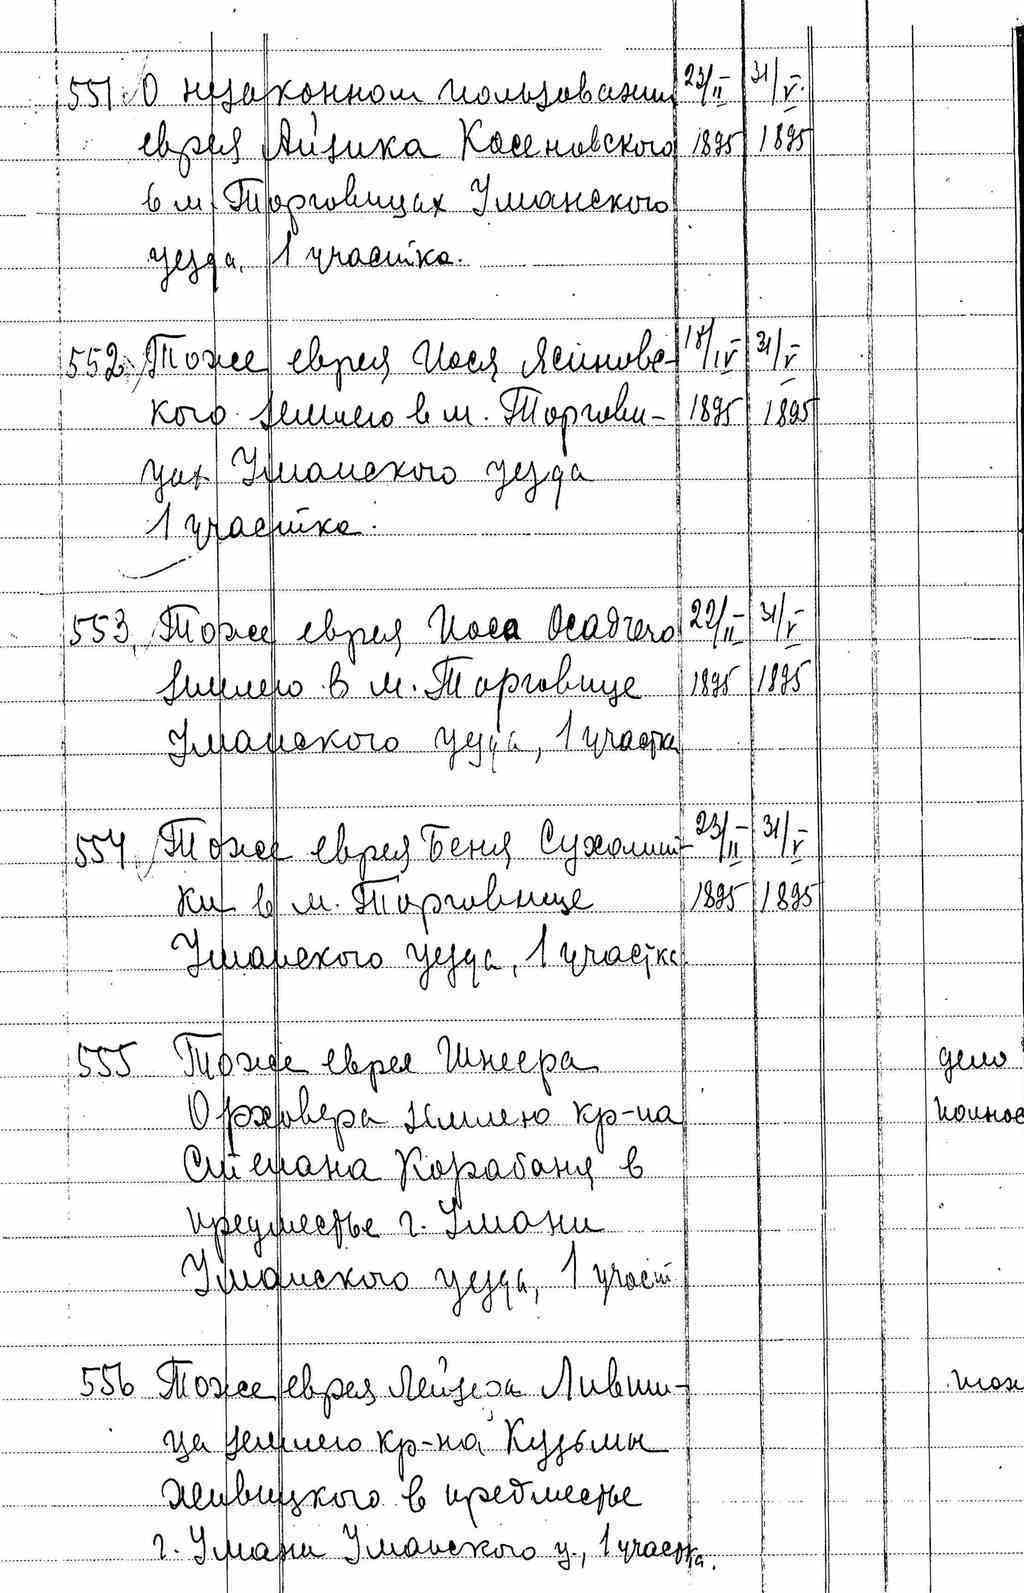 551. О незаконном пользовании 23/II 31/V
еврея Айзика Косеновского 1895 1895
в м. Торговицах Уманского
уезда, 1 участка.
552. Тоже еврея Иося ЯSиновс- 18/IV 31/V
кого землею в м. Торгови- 1895 1895
цах Уманского уезда
1 участка.
553. Тоже еврея Иося Осадчего 22/II 31/V
землею в м. Торговице 1895 1895
Уманского уезда, 1 участка
554. Тоже еврея Беня Сухолит- 23/II 31/V
ки в м. Торговице 1895 1895
Уманского уезда, 1 участка
555 Тоже еврея Шнеера дело
Орховера землею кр-на полнос
Степана Корабаня в
предместье г. Умани
Уманского уезда, 1 участ
556 Тоже еврея Лейзера Ливши- тож
ца землею кр-на Кузьмы
Живицкого в предместье
г. Умани Уманского у., 1 участка.